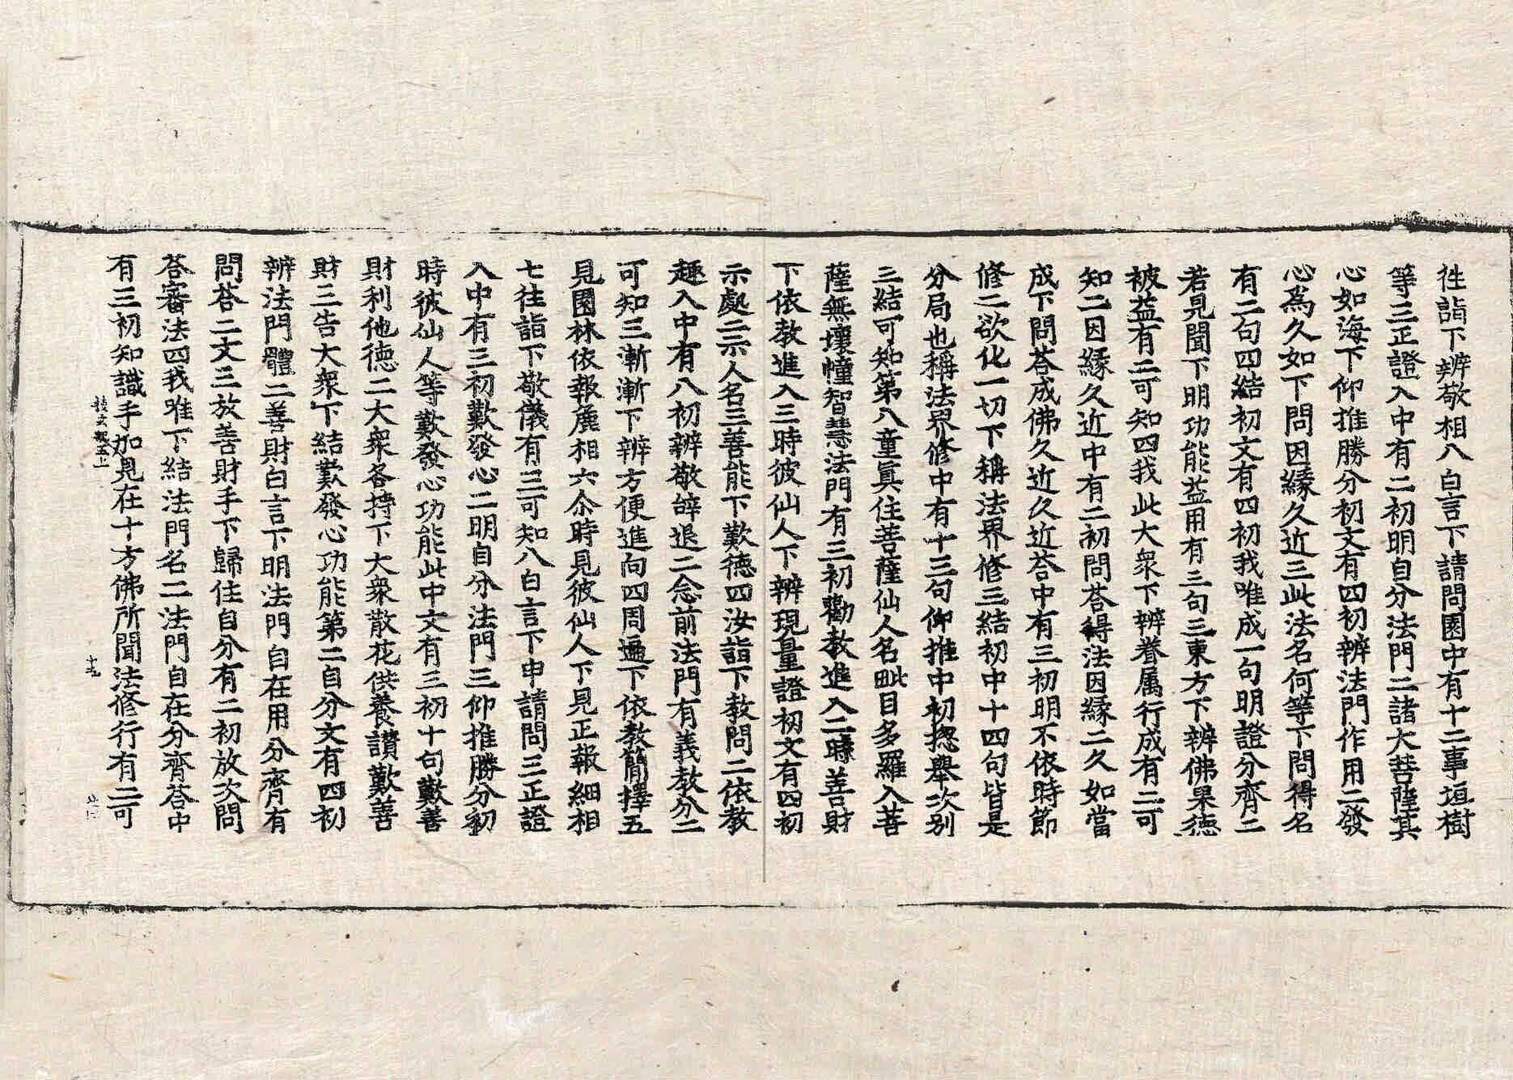 往詣下辨敬相八白言下請問園中有十二事垣樹
等三正證入中有二初明自分法門二諸大菩薩其
心如海下仰推勝分初文有四初辨法門作用二發
心為久如下問因緣久近三此法名何等下問得名
有二句四結初文有四初我唯成一句明證分齊二
若見聞下明功能益用有三句三東方下辨佛果德
被益有二可知四我此大衆下辨眷属行成有二可
知二因緣久近中有二初問荅得法因緣二久如當
成下問荅成佛久近久近荅中有三初明不依時節
修二欲化一切下稱法界修三結初中十四句皆是
分局也稱法界修中有十三句仰推中初揔舉次別
三結可知第八童真住菩薩仙人名毗目多羅入菩
薩無壞幢智慧法門有三初勸教進入二時善財
下依教進入三時彼仙人下辨現量證初文有四初
示處二示人名三善能下歎德四汝詣下教問二依教
趣入中有八初辨敬辞退二念前法門有義教分二
可知三漸漸下辨方便進向四周遍下依教簡擇五
見園林依報麁相六尒時見彼仙人下見正報細相
七往詣下敬儀有三可知八白言下申請問三正證
入中有三初歎發心二明自分法門三仰推勝分初
時彼仙人等歎發心功能此中文有三初十句歎善
財利他德二大衆各持下大衆散花供養讃歎善
財三告大衆下結歎發心功能第二自分文有四初
辨法門體二善財白言下明法門自在用分齊有
問荅二文三放善財手下歸住自分有二初放次問
荅審法四我唯下結法門名二法門自在分齊荅中
有三初知識手加見在十方佛所聞法修行有二可
十九